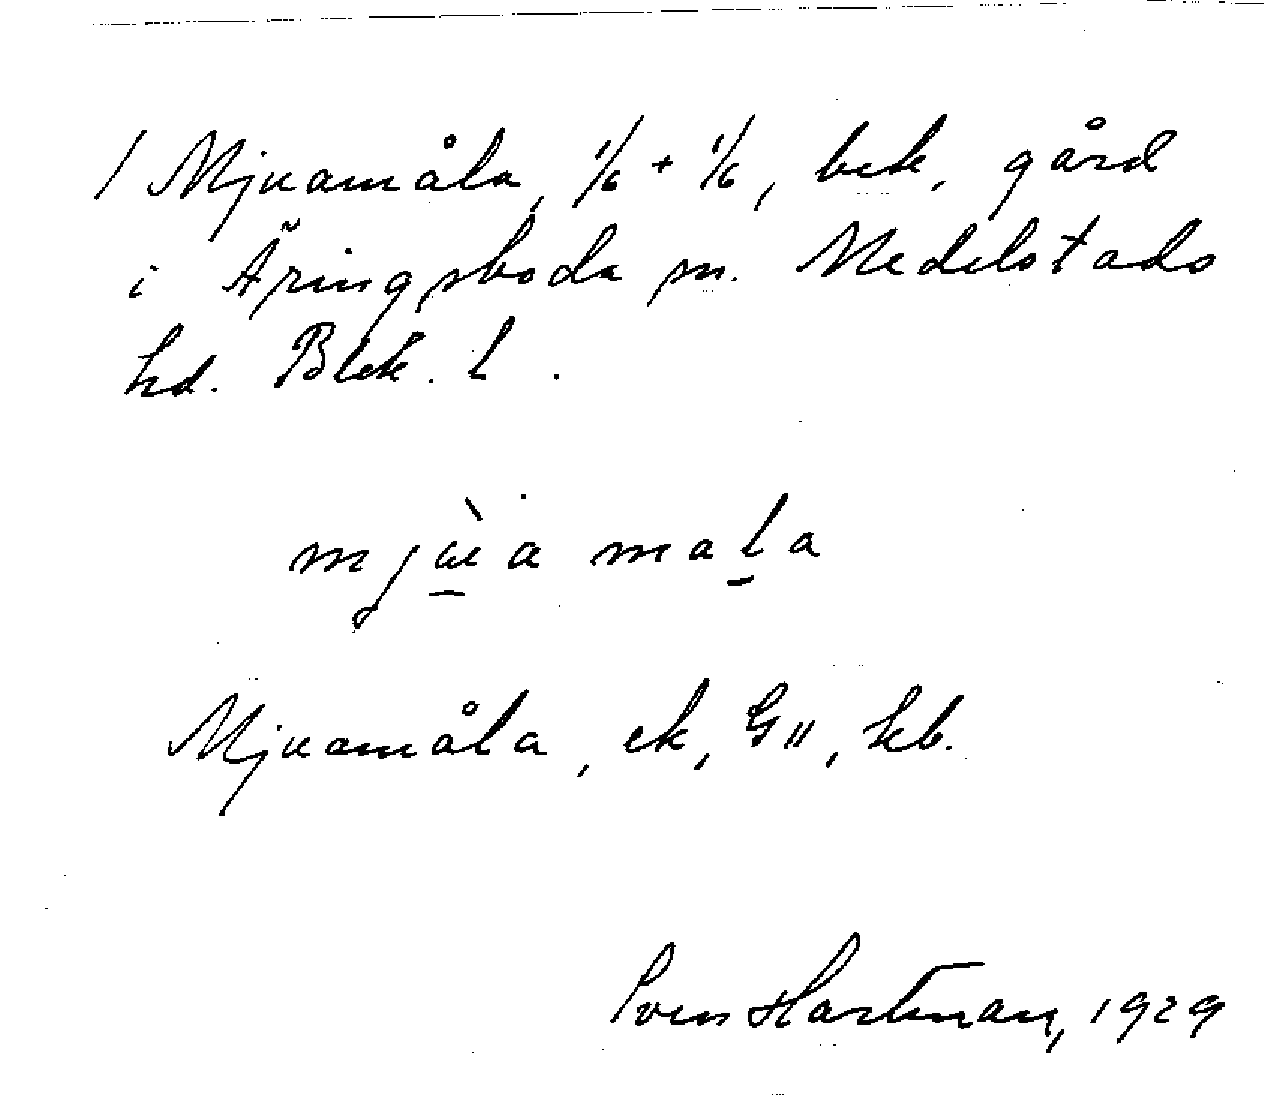 / Mjuamåla, 1/6 + 1/6, bek. gård
i Äringsboda sn. Medelstads
hd. Blek. l.
mjùa mala
Mjuamåla, ek, G11, kb.
Sven Hartman, 1929